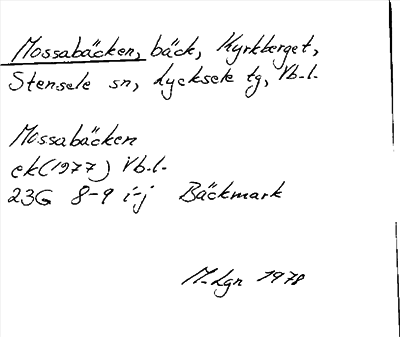 Mossabäcken, bäck, Kyrkberget,
Stensele sn, Lycksele tg, Vb.l.
Mossabäcken
ek(1977) Vb.l.
23G 8-9 i-j Bäckmark
M.Lgn 1978